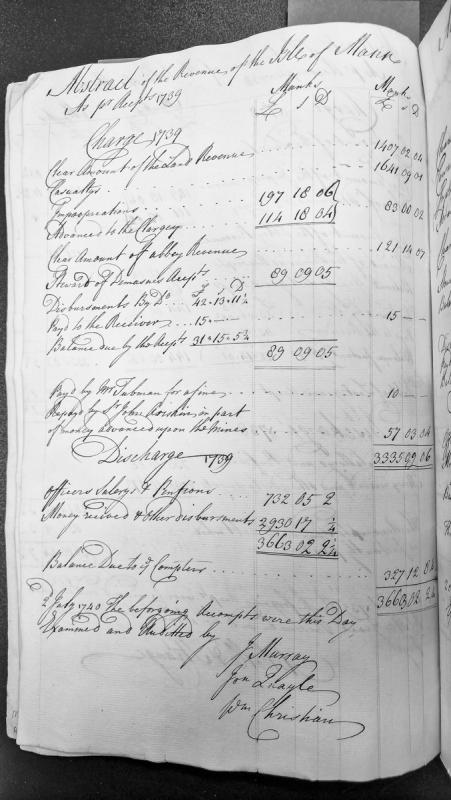 Abstract of the Revenues of the Isle of Mann
As pr Accpts 1739
Manks Manks
£ s D £ s D
Charge 1739
Clear Amount of the Land Revenue 1407 02 04
Casualtys 1641 09 01
Impropriations 197 18 06
Advanced to the Clergey 114 18 04 83 00 02
Clear Amount of abbey Revenues 121 14 07
Steward of Demasnes Accpts 89 09 05
£ s D
Disbursments By Do 42 - 13 - 11½
Payd to the Receiver 15 - — 15 — —
Balance due by the Accpt 31 - 15 - 5½
89 09 05
Payd by Mr Tubman for a fine 10 — —
Repayd by Sr John Erskine, in part
of money advanced upon the Mines 57 03 04
Discharge 1739 3335 09 06
Officers Salerys & Pensions 732 05 2
Money received & other disbursments 2930 17 ¼
3663 02 2¼
Balance Due to ye Compters 327 12 8¼
3663 02 2¼
2 July 1740 The beforgoing Accompts were this Day
Examined and Auditted by
J Murray
Jon Quayle
Wm Christian